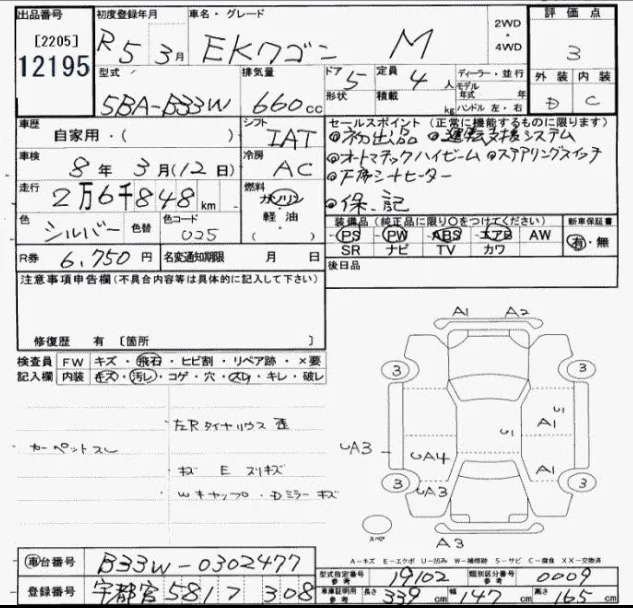 出品番号 初度登録年月 車名・グレード 2WD・4WD 評価点
[2205] R5年3月 EKワゴン M 3
12195 型式 排気量 ドア 5 定員 4人 ディーラー・並行 外装 内装
5BA-B33W 660cc 形状 積載 kg モデル年式 年 ハンドル 左・右 D C
車歴 自家用・( ) シフト IAT セールスポイント (正常に機能するものに限ります)
◎初出品 ◎運転支援システム
車検 8年3月(12日) 冷房 AC ◎オートマチックハイビーム ◎ステアリングスイッチ
走行 2万6千848km 燃料 ガソリン 軽油 ( )
◎保、記
色 シルバー 色替 色コード U25 装備品 (純正品に限り○をつけてください) 新車保証書
PS PW ABS エアB AW 有・無
SR ナビ TV カワ
R券 6,750円 名変通知期限 月 日 後日品
注意事項申告欄(不具合内容等は具体的に記入して下さい)
修復歴 有 〔箇所 〕
検査員 FW キズ・飛石・ヒビ割・リペア跡・×要
記入欄 内装 キズ・汚レ・コゲ・穴・スレ・キレ・破レ
A1 A2
3 3
左Rタイヤハウス 歪
カーペットスレ
キズ E スリキズ
Wキャップ・Dミラーキズ
UA3 UA4 U1 U1 A1
A1
UA3
3 3
スペア
A3
A-キズ E-エクボ U-凹み W-補修跡 S-サビ C-腐食 XX-交換済
車台番号 B33W-0302477 型式指定番号 参考 19102 類別区分番号 参考 0009
登録番号 宇都宮 581 308 車庫証明用 参考 長さ 339cm 幅 147cm 高さ 165cm